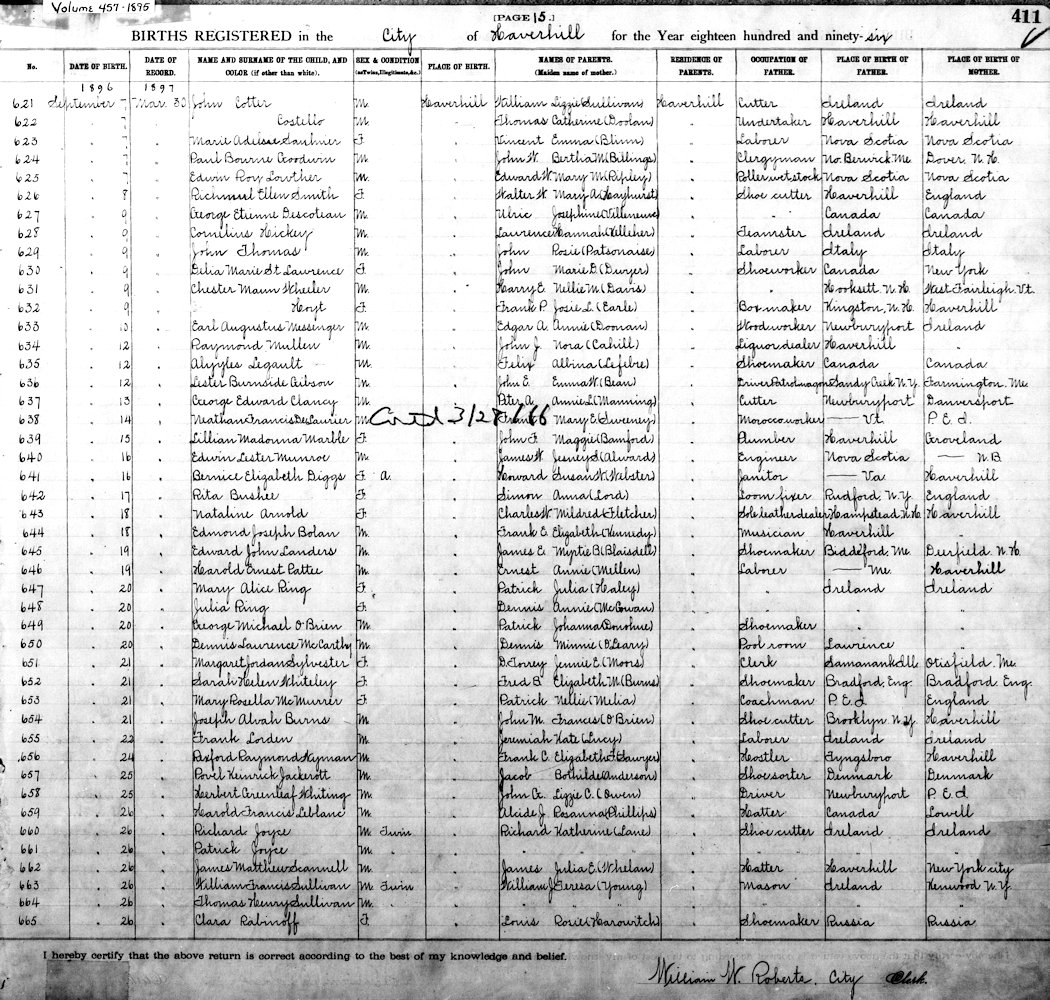 Volume 457-1895
[PAGE 15.] 411
BIRTHS REGISTERED in the City of Haverhill for the Year eighteen hundred and ninety-six
No. DATE OF BIRTH. DATE OF RECORD. NAME AND SURNAME OF THE CHILD, AND COLOR (if other than white). SEX & CONDITION (as Twins, Illegitimate, &c.) PLACE OF BIRTH. NAMES OF PARENTS. (Maiden name of mother.) RESIDENCE OF PARENTS. OCCUPATION OF FATHER. PLACE OF BIRTH OF FATHER. PLACE OF BIRTH OF MOTHER.
1896 1897
621 September 7 Mar. 30 John Cotter M. Haverhill William Lizzie (Sullivan) Haverhill Cutter Ireland Ireland
622 " 7 " Costello M. " Thomas Catherine (Doolan) " Undertaker Haverhill Haverhill
623 " 7 " Marie Adiesse Saulnier F. " Vincent Emma (Blinn) " Laborer Nova Scotia Nova Scotia
624 " 7 " Paul Bourne Goodwin M. " John W. Bertha M (Billings) " Clergyman No. Berwick Me. Dover, N.H.
625 " 7 " Edwin Roy Lowther M. " Edward W. Mary M. (Ripley) " Roller wet stock Nova Scotia Nova Scotia
626 " 8 " Ellen Smith F. " Walter W. Mary A. (Hayhurst) " Shoe cutter Haverhill England
627 " 9 " George Etienne Descoteau M. " Ulric Josephine (Villeneuve) " " Canada Canada
628 " 9 " Cornelius Hickey M. " Laurence Hannah (Kelleher) " Teamster Ireland Ireland
629 " 9 " John Thomas M. " John Rosie (Patsonaise) " Laborer Italy Italy
630 " 9 " Delia Marie St Lawrence F. " John Marie D. (Dwyer) " Shoeworker Canada New York
631 " 9 " Chester Mann Wheeler M. " Harry E. Nellie M. (Davis) " " Hooksett N.H. West Fairleigh Vt.
632 " 9 " Hoyt F. " Frank P. Josie L. (Earle) " Box maker Kingston, N.H. Haverhill
633 " 10 " Earl Augustus Messenger M. " Edgar A. Annie (Doonan) " Woodworker Newburyport Ireland
634 " 12 " Raymond Mullen M. " John J. Nora (Cahill) " Liquor dealer Haverhill "
635 " 12 " Alyyles Legault M. " Felix Albina (Lefebre) " Shoemaker Canada Canada
636 " 12 " Lester Burnside Gibson M. " John E. Emma W. (Bean) " Driver Patrol wagon Sandy Creek N.Y. Farmington, Me.
637 " 13 " George Edward Clancy M. " Peter A. Annie L. (Manning) " Cutter Newburyport Danversport
638 " 14 " Neathan Francis De Laurier M. " Frank Mary E. (Sweeney) " Moroccoworker — Vt. P.E.I.
639 " 15 " Lillian Madonna Marble F. " John F. Maggie (Bamford) " Plumber Haverhill Groveland
640 " 16 " Edwin Lester Munroe M. " James W. (Alward) " Engineer Nova Scotia — N.B.
641 " 16 " Bernice Elizabeth Diggs F. A. " Howard Susan W. (Webster) " Janitor — Va. Haverhill
642 " 17 " Rita Bushee F. " Simon Anna (Lord) " Loom fixer Rudford, N.Y. England
643 " 18 " Nataline Arnold F. " Charles W. Mildred (Fletcher) " Sole leather dealer Hampstead, N.H. Haverhill
644 " 18 " Edmond Joseph Bolan M. " Frank E. Elizabeth (Kennedy) " Musician Haverhill "
645 " 19 " Edward John Landers M. " James E. Myrtie B (Blaisdell) " Shoemaker Biddeford, Me. Deerfield, N.H.
646 " 19 " Harold Ernest Pattee M. " Ernest Annie (Mellen) " Laborer — Me. Haverhill
647 " 20 " Mary Alice Ring F. " Patrick Julia (Haley) " " Ireland Ireland
648 " 20 " Julia Ring F. " Dennis Annie (McGowan) " " " "
649 " 20 " George Michael O'Brien M. " Patrick Johanna (Donohue) " Shoemaker " "
650 " 20 " Dennis Lawrence McCarthy M. " Dennis Minnie (O'Leary) " Pool room Lawrence "
651 " 21 " Margaret Jordan Sylvester F. " D. Torrey Jennie E. (Moors) " Clerk Otisfield, Me.
652 " 21 " Sarah Helen Whiteley F. " Fred B. Elizabeth M. (Burns) " Shoemaker Bradford, Eng. Bradford Eng.
653 " 21 " Mary Rosella McMurrer F. " Patrick Nellie (Melia) " Coachman P.E.I. England
654 " 21 " Joseph Alvah Burns M. " John M. Frances (O'Brien) " Shoe cutter Brooklyn N.Y. Haverhill
655 " 22 " Frank Lorden M. " Jeremiah Kate (Lucy) " Laborer Ireland Ireland
656 " 24 " Rexford Raymond Hyman M. " Frank C. Elizabeth F. (Sawyer) " Hostler Tyngsboro Haverhill
657 " 25 " Povel Heinrick Jackerott M. " Jacob Bothilde (Anderson) " Shoe sorter Denmark Denmark
658 " 25 " Herbert Greenleaf Whiting M. " John G. Lizzie C. (Owen) " Driver Newburyport P.E.I.
659 " 26 " Harold Francis Leblanc M. " Alcide J. Rosanna (Phillips) " Hatter Canada Lowell
660 " 26 " Richard Joyce M. Twin " Richard Katherine (Lane) " Shoe cutter Ireland Ireland
661 " 26 " Patrick Joyce M. " " " " " " " "
662 " 26 " James Matthew Scannell M. " James Julia E. (Whelan) " Hatter Haverhill New York city
663 " 26 " William Francis Sullivan M. Twin " William J. Teresa (Young) " Mason Ireland Kenwood N.Y.
664 " 26 " Thomas Henry Sullivan M. " " " " " " " "
665 " 26 " Clara Rabinoff F. " Louis Rosie (Harowitch) " Shoemaker Russia Russia
I hereby certify that the above return is correct according to the best of my knowledge and belief.
William W. Roberts, City Clerk.